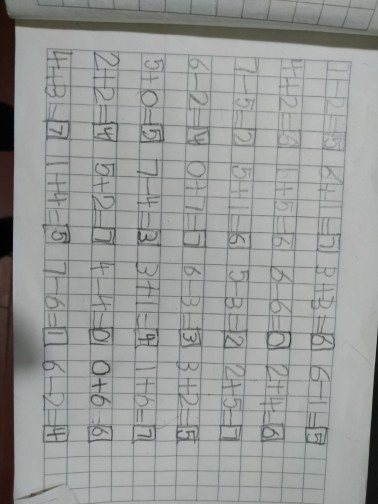 7-2=5 6+1=7 3+3=6 6-1=5
4+2=6 1+5=6 6-6=0 2+4=6
7-5=2 5+1=6 5-3=2 2+5=7
6-2=4 0+7=7 6-3=3 3+2=5
5+0=5 7-4=3 3+1=4 1+6=7
2+2=4 5+2=7 4-4=0 0+6=6
4+3=7 1+4=5 7-6=1 6-2=4